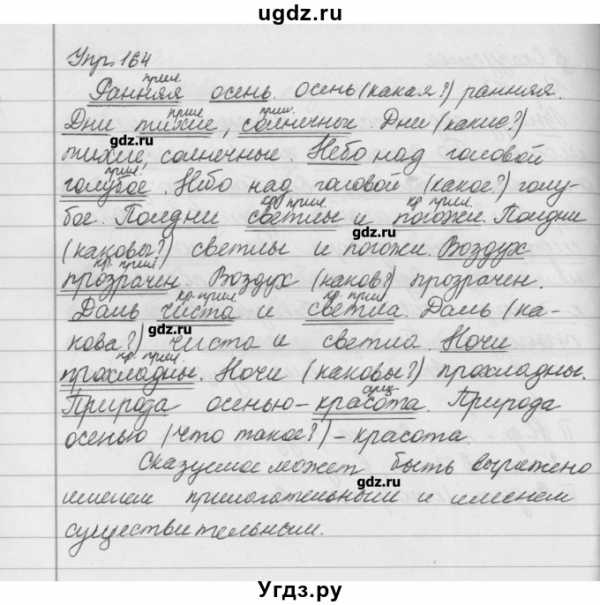 gdz.ru
ugdz.ru
Упр. 164
прил.
Ранняя осень. Осень (какая?) ранняя.
прил. прил.
Дни тихие, солнечные. Дни (какие?)
gdz.ru
тихие, солнечные. Небо над головой
прил.
голубое. Небо над головой (какое?) голу-
кр. прил. кр. прил.
бое. Полдни светлы и погожи. Полдни
gdz.ru
(каковы?) светлы и погожи. Воздух
кр. прил.
прозрачен. Воздух (каков?) прозрачен.
кр. прил. кр. прил.
Даль чиста и светла. Даль (ка-
gdz.ru
кова?) чиста и светла. Ночи
кр. прил.
прохладны. Ночи (каковы?) прохладны.
сущ.
Природа осенью – красота. Природа
осенью (что такое?) – красота.
gdz.ru
Сказуемое может быть выражено
именем прилагательным и именем
gdz.ru
существительным.
Угдз.ру